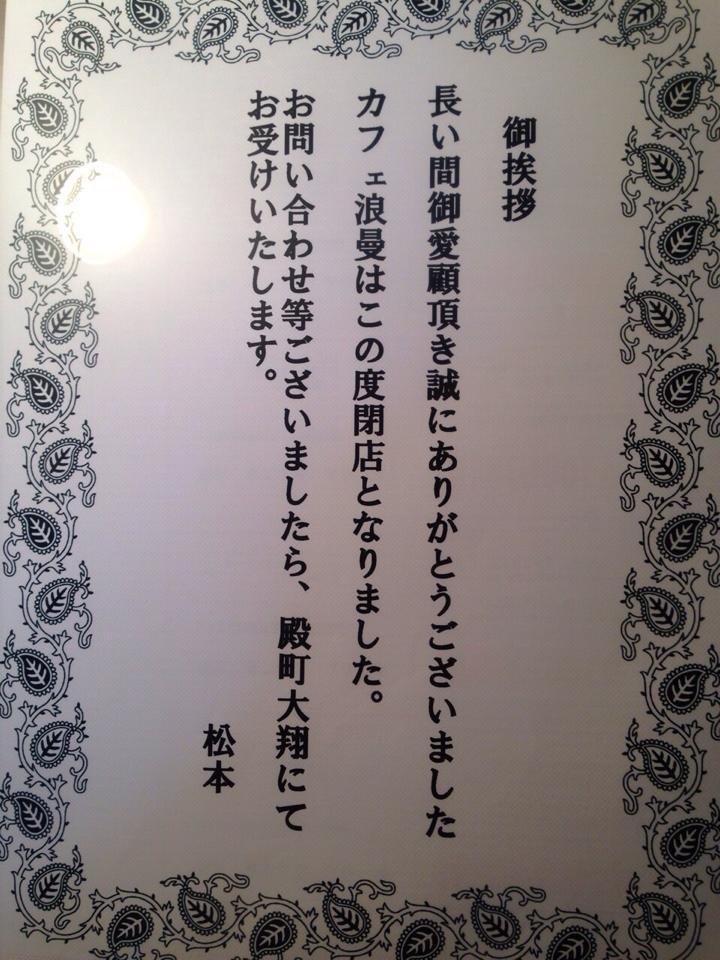 御挨拶
長い間御愛顧頂き誠にありがとうございました
カフェ浪曼はこの度閉店となりました。
お問い合わせ等ございましたら、殿町大翔にて
お受けいたします。
松本